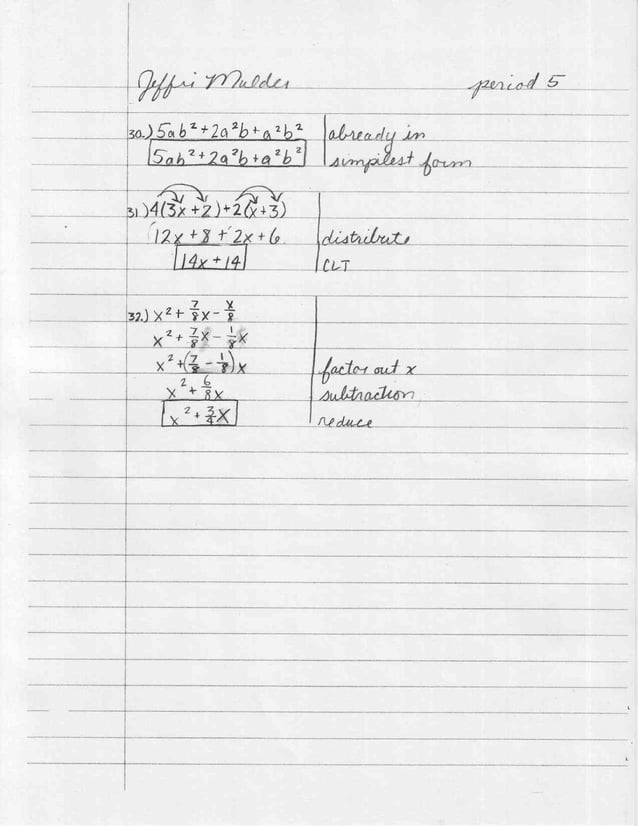 Jeffri Mulder period 5
30.) 5ab² + 2a²b + a²b² already in
5ab² + 2a²b + a²b² simpilest form
31.) 4(3x + 2) + 2(x + 3)
12x + 8 + 2x + 6 distribute
14x + 14 CLT
32.) x² + 7/8 x - x/8
x² + 7/8 x - 1/8 x
x² + (7/8 - 1/8) x factor out x
x² + 6/8 x subtraction
x² + 3/4 x reduce